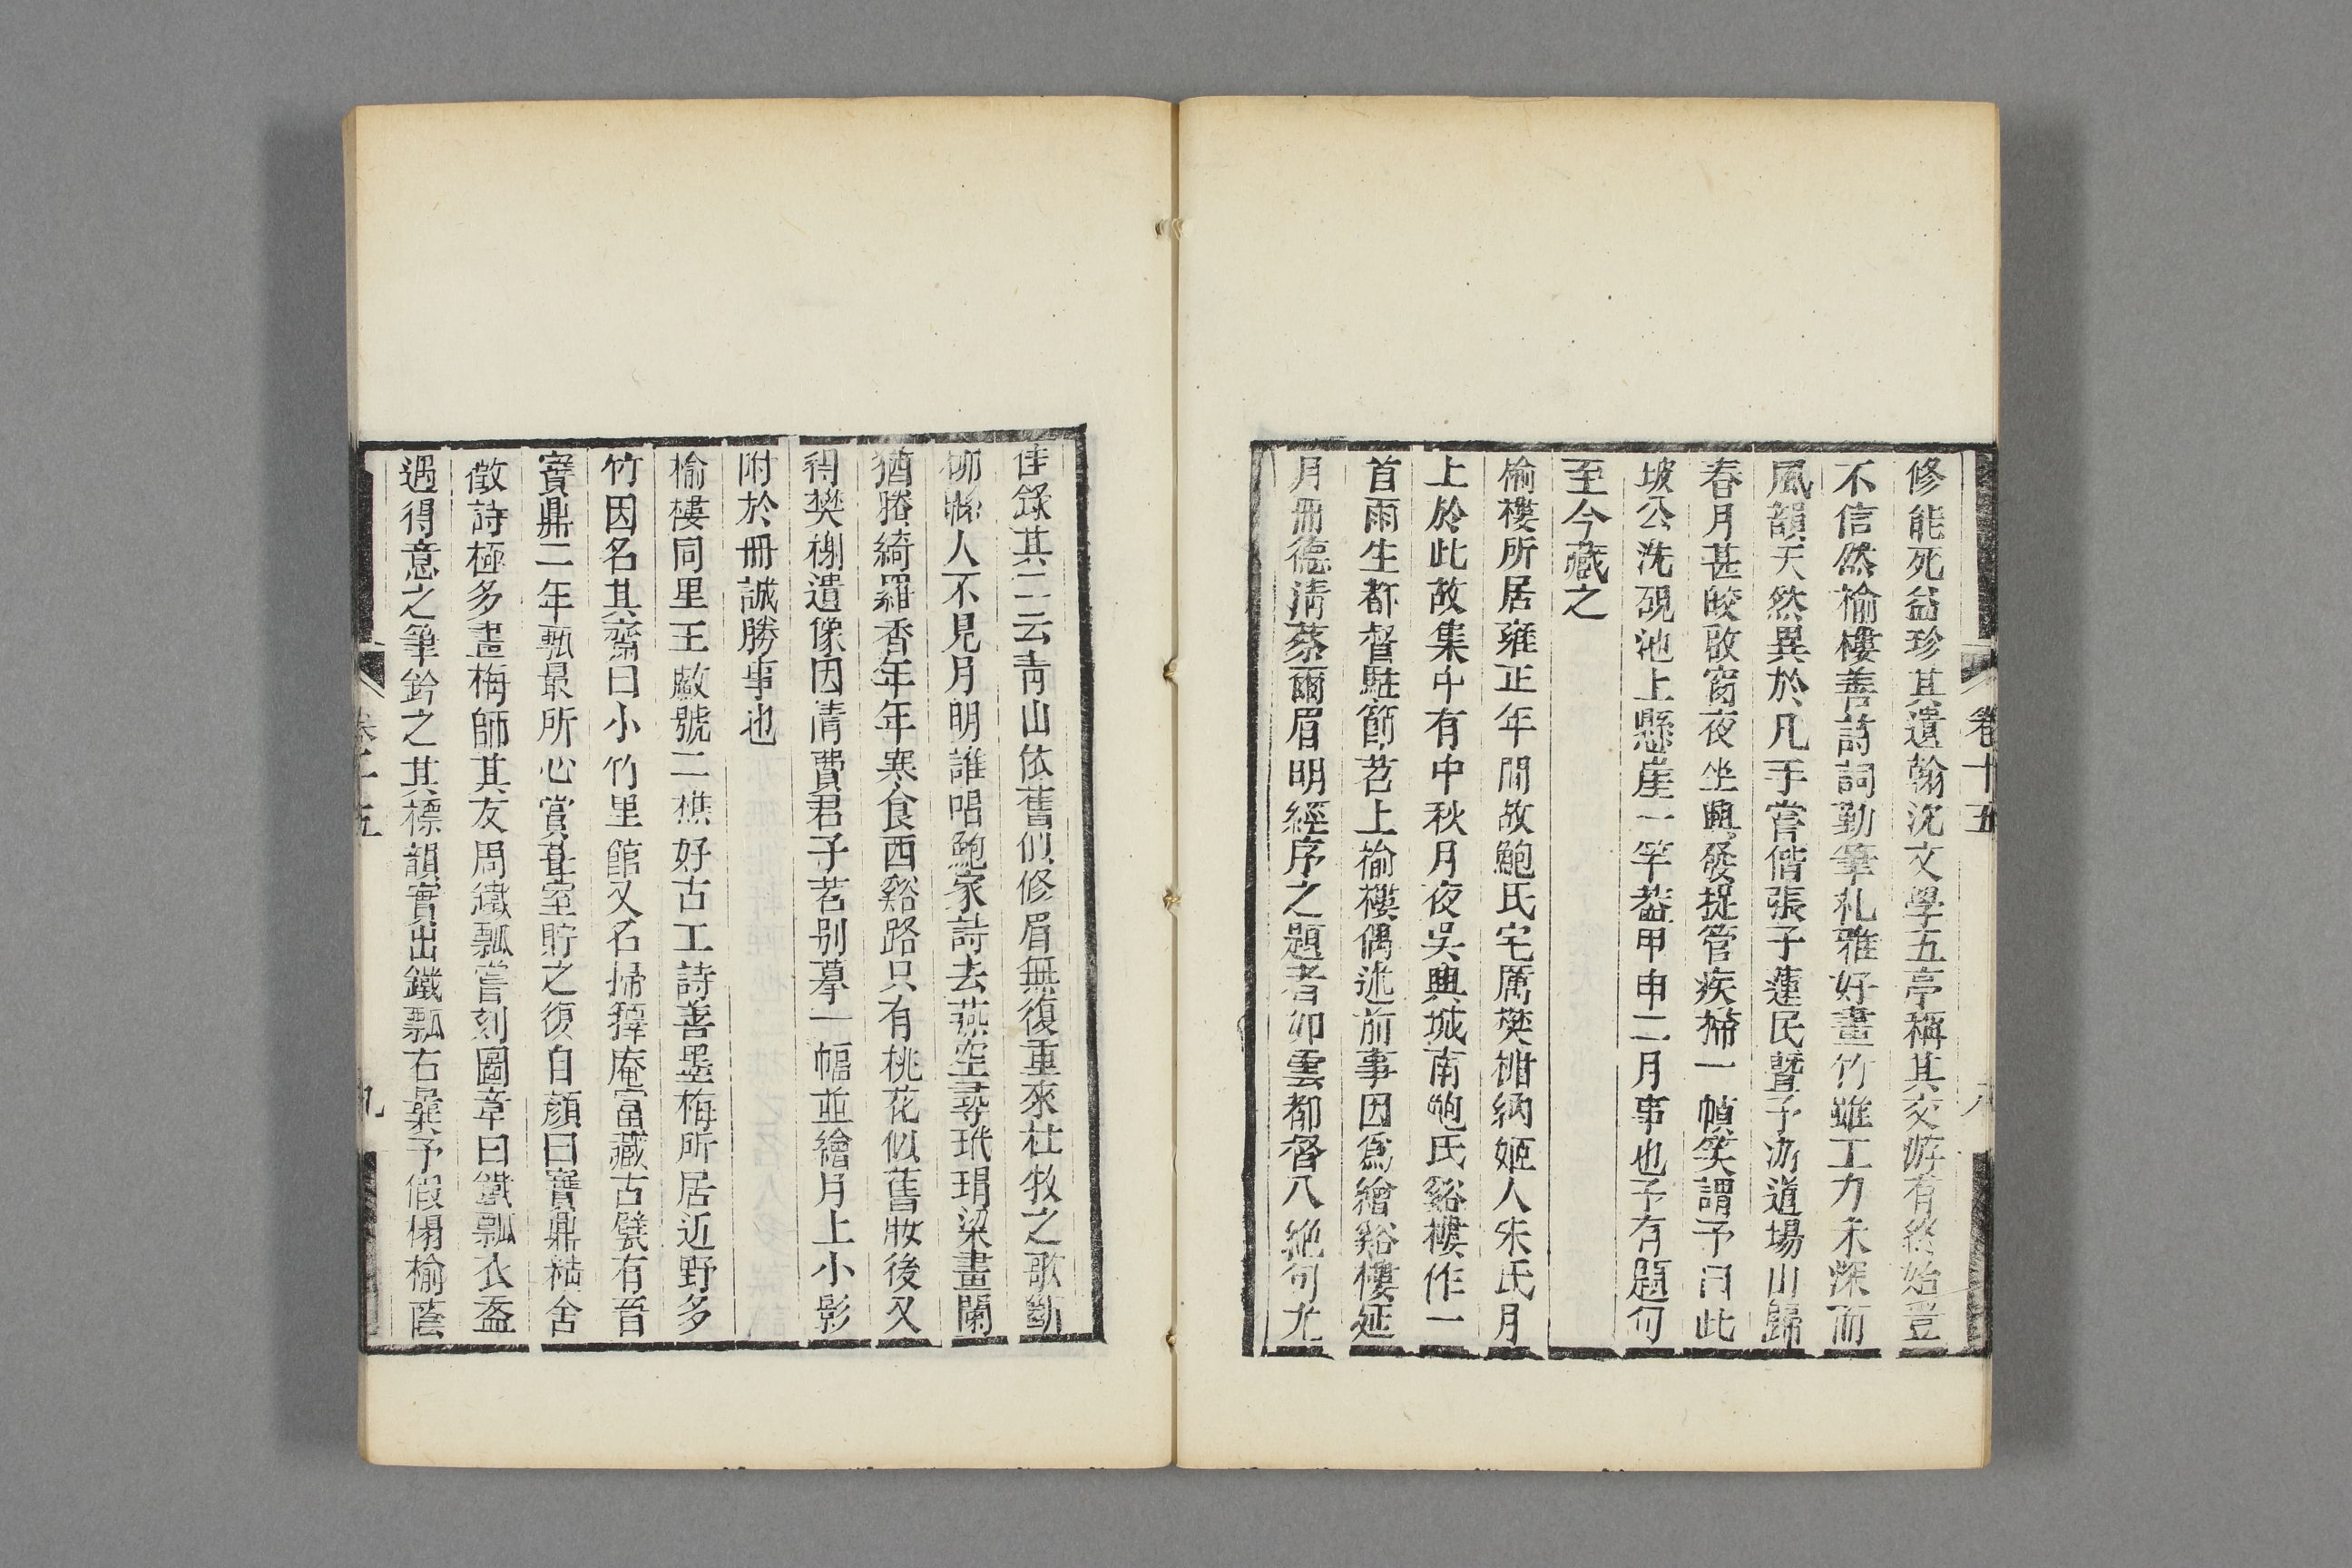 卷十五
八
修能死益珍其遺翰沈文學五亭稱其交游有終始豈
不信然榆樓善詩詞勤筆札雅好畫竹雖工力未深而
風韻天然異於凡手嘗偕張子蓮民曁予游道場山歸
春月甚皎啟窗夜坐興發捉管疾掃一幀笑謂予曰此
坡公洗硯池上懸崖一竿葢甲申二月事也予有題句
至今藏之
榆樓所居雍正年間故鮑氏宅厲樊榭納姬人朱氏月
上於此故集中有中秋月夜吳興城南鮑氏谿樓作一
首雨生都督駐節苕上榆樓偶述前事因爲繪谿樓延
月冊德清蔡爾眉明經序之題者夘雲都督八絶句尤
佳錄其二云青山依舊似修眉無復重來杜牧之歌斷
柳緜人不見月明誰唱鮑家詩去燕空尋玳瑁梁畫闌
猶膡綺羅香年年寒食西谿路只有桃花似舊妝後又
得樊榭遺像因清費君子苕别摹一幅並繪月上小影
附於冊誠勝事也
榆樓同里王敵號二樵好古工詩善墨梅所居近野多
竹因名其齋曰小竹里館又名掃籜庵富藏古甓有晉
寶鼎二年瓿最所心賞葺室貯之復自顔曰寶鼎精舍
徵詩極多畫梅師其友周鐵瓢嘗刻圖章曰鐵瓢衣盋
遇得意之筆鈐之其標韻實出鐵瓢右彛予假榻榆蔭
卷十五
九